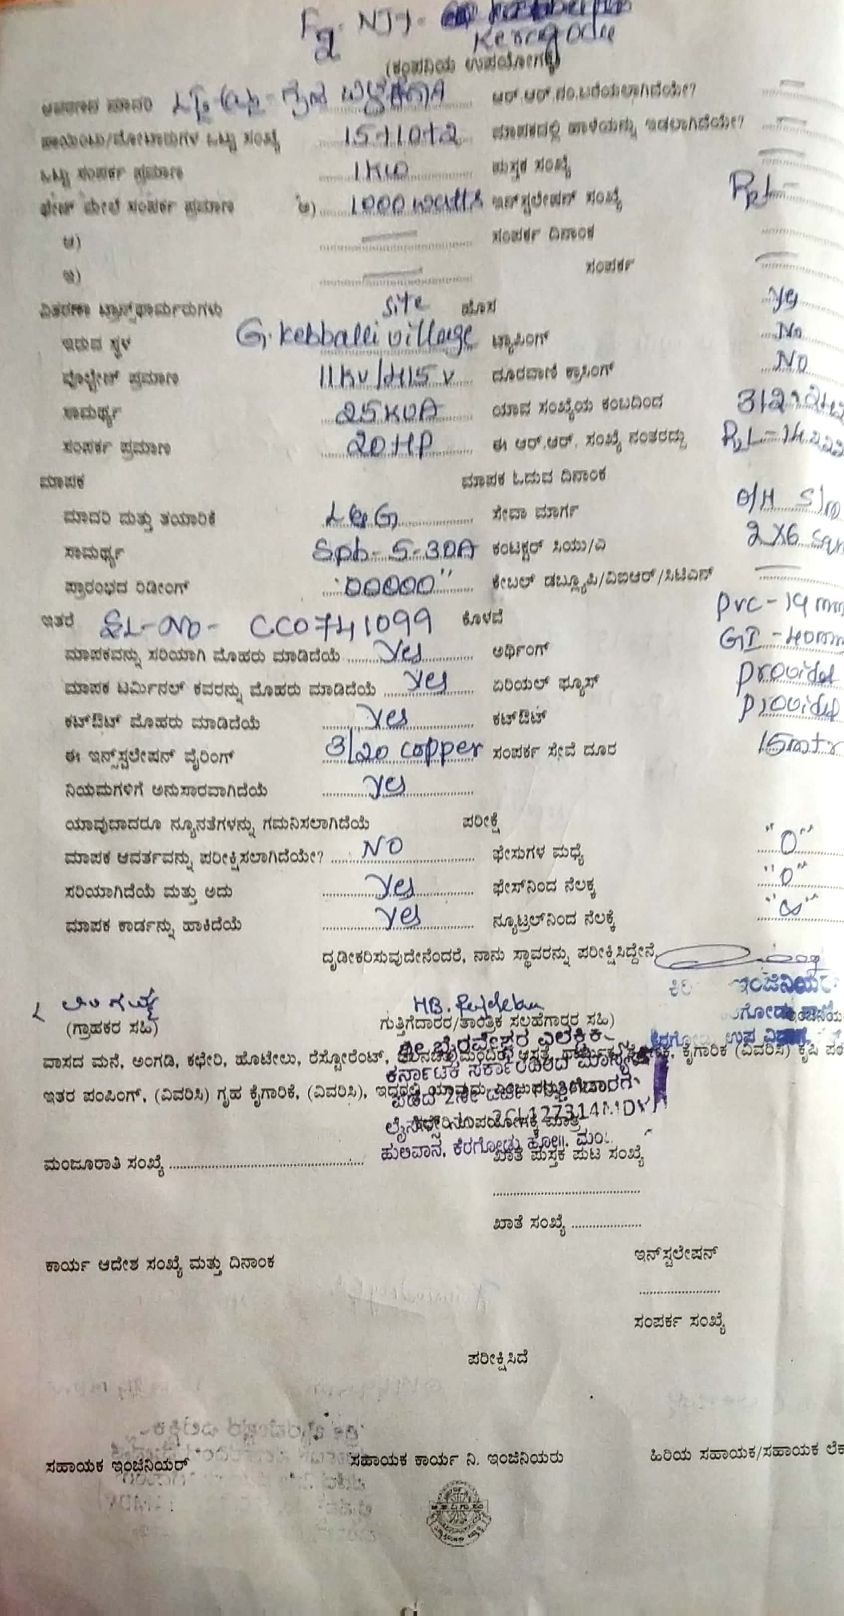 Kergodu
(ಕಂಪನಿಯ ಉಪಯೋಗಕ್ಕೆ)
ಮಾದರಿ ಆರ್.ಆರ್.ನಂ.ಬರೆಯಲಾಗಿದೆಯೇ?
ಪಾಯಿಂಟು/ಮೋಟಾರುಗಳ ಒಟ್ಟು ಸಂಖ್ಯೆ 15+10+2 ಮಾಪಕದಲ್ಲಿ ಹಾಳೆಯನ್ನು ಇಡಲಾಗಿದೆಯೇ?
ಒಟ್ಟು ಸಂಪರ್ಕ ಪ್ರಮಾಣ 1KW ಪುಸ್ತಕ ಸಂಖ್ಯೆ
ಫೇಜ್ ಮೇಲೆ ಸಂಪರ್ಕ ಪ್ರಮಾಣ ಅ) 1000 watts ಇನ್‌ಸ್ಟಲೇಷನ್ ಸಂಖ್ಯೆ RRL-
ಆ) ಸಂಪರ್ಕ ದಿನಾಂಕ
ಇ) ಸಂಪರ್ಕ
ವಿತರಣಾ ಟ್ರಾನ್ಸ್‌ಫಾರ್ಮರುಗಳು site ಹೊಸ yes
ಇರುವ ಸ್ಥಳ G. Kebballi village ಟ್ಯಾಪಿಂಗ್ No
ವೋಲ್ಟೇಜ್ ಪ್ರಮಾಣ 11KV/415 V ದೂರವಾಣಿ ಕ್ರಾಸಿಂಗ್ NO
ಸಾಮರ್ಥ್ಯ 25KVA ಯಾವ ಸಂಖ್ಯೆಯ ಕಂಬದಿಂದ
ಸಂಪರ್ಕ ಪ್ರಮಾಣ 20HP ಈ ಆರ್.ಆರ್. ಸಂಖ್ಯೆ ನಂತರದ್ದು
ಮಾಪಕ ಮಾಪಕ ಓದುವ ದಿನಾಂಕ
ಮಾದರಿ ಮತ್ತು ತಯಾರಿಕೆ L&G ಸೇವಾ ಮಾರ್ಗ O/H
ಸಾಮರ್ಥ್ಯ 5-30A ಕಂಡಕ್ಟರ್ ಸಿಯು/ಎ 2X6 sqm
ಪ್ರಾರಂಭದ ರಿಡೀಂಗ್ "00000" ಕೇಬಲ್ ಡಬ್ಲ್ಯೂಪಿ/ವಿಐಆರ್/ಸಿಟಿಎಸ್
ಇತರೆ SL-NO- CC0741099 ಕೊಳವೆ PVC-19mm
ಮಾಪಕವನ್ನು ಸರಿಯಾಗಿ ಮೊಹರು ಮಾಡಿದೆಯೆ Yes ಅರ್ಥಿಂಗ್ GI-40mm
ಮಾಪಕ ಟರ್ಮಿನಲ್ ಕವರನ್ನು ಮೊಹರು ಮಾಡಿದೆಯೆ Yes ಏರಿಯಲ್ ಫ್ಯೂಸ್ provided
ಕಟ್‌ಔಟ್ ಮೊಹರು ಮಾಡಿದೆಯೆ Yes ಕಟ್‌ಔಟ್ provided
ಈ ಇನ್‌ಸ್ಟಲೇಷನ್ ವೈರಿಂಗ್ 3/20 copper ಸಂಪರ್ಕ ಸೇವೆ ದೂರ 15mtr
ನಿಯಮಗಳಿಗೆ ಅನುಸಾರವಾಗಿದೆಯೆ yes
ಯಾವುದಾದರೂ ನ್ಯೂನತೆಗಳನ್ನು ಗಮನಿಸಲಾಗಿದೆಯೆ ಪರೀಕ್ಷೆ
ಮಾಪಕ ಆವರ್ತವನ್ನು ಪರೀಕ್ಷಿಸಲಾಗಿದೆಯೇ? NO ಫೇಸುಗಳ ಮಧ್ಯೆ "0"
ಸರಿಯಾಗಿದೆಯೆ ಮತ್ತು ಅದು Yes ಫೇಸ್‌ನಿಂದ ನೆಲಕ್ಕೆ "0"
ಮಾಪಕ ಕಾರ್ಡನ್ನು ಹಾಕಿದೆಯೆ Yes ನ್ಯೂಟ್ರಲ್‌ನಿಂದ ನೆಲಕ್ಕೆ "∞"
ದೃಢೀಕರಿಸುವುದೇನೆಂದರೆ, ನಾನು ಸ್ಥಾವರನ್ನು ಪರೀಕ್ಷಿಸಿದ್ದೇನೆ
(ಗ್ರಾಹಕರ ಸಹಿ) ಗುತ್ತಿಗೆದಾರರ/ತಾಂತ್ರಿಕ ಸಲಹೆಗಾರರ ಸಹಿ)
ಶ್ರೀ ಬೈರವೇಶ್ವರ ಎಲೆಕ್ಟ್ರಿಕಲ್
ವಾಸದ ಮನೆ, ಅಂಗಡಿ, ಕಛೇರಿ, ಹೊಟೇಲು, ರೆಸ್ಟೋರೆಂಟ್, ಕೈಗಾರಿಕ (ವಿವರಿಸಿ) ಕೃಷಿ ಪಂ
ಕರ್ನಾಟಕ ಸರ್ಕಾರದಿಂದ ಮಾನ್ಯತೆ
ಇತರ ಪಂಪಿಂಗ್, (ವಿವರಿಸಿ) ಗೃಹ ಕೈಗಾರಿಕೆ, (ವಿವರಿಸಿ),
2CL127314MDYA
ಹುಲಿವಾನ, ಕೆರಗೋಡು ಹೋ॥, ಮಂ.
ಮಂಜೂರಾತಿ ಸಂಖ್ಯೆ ಖಾತೆ ಪುಸ್ತಕ ಪುಟ ಸಂಖ್ಯೆ
ಖಾತೆ ಸಂಖ್ಯೆ
ಕಾರ್ಯ ಆದೇಶ ಸಂಖ್ಯೆ ಮತ್ತು ದಿನಾಂಕ ಇನ್‌ಸ್ಟಲೇಷನ್
ಸಂಪರ್ಕ ಸಂಖ್ಯೆ
ಪರೀಕ್ಷಿಸಿದೆ
ಸಹಾಯಕ ಇಂಜಿನಿಯರ್ ಸಹಾಯಕ ಕಾರ್ಯ ನಿ. ಇಂಜಿನಿಯರು ಹಿರಿಯ ಸಹಾಯಕ/ಸಹಾಯಕ ಲೆಕ